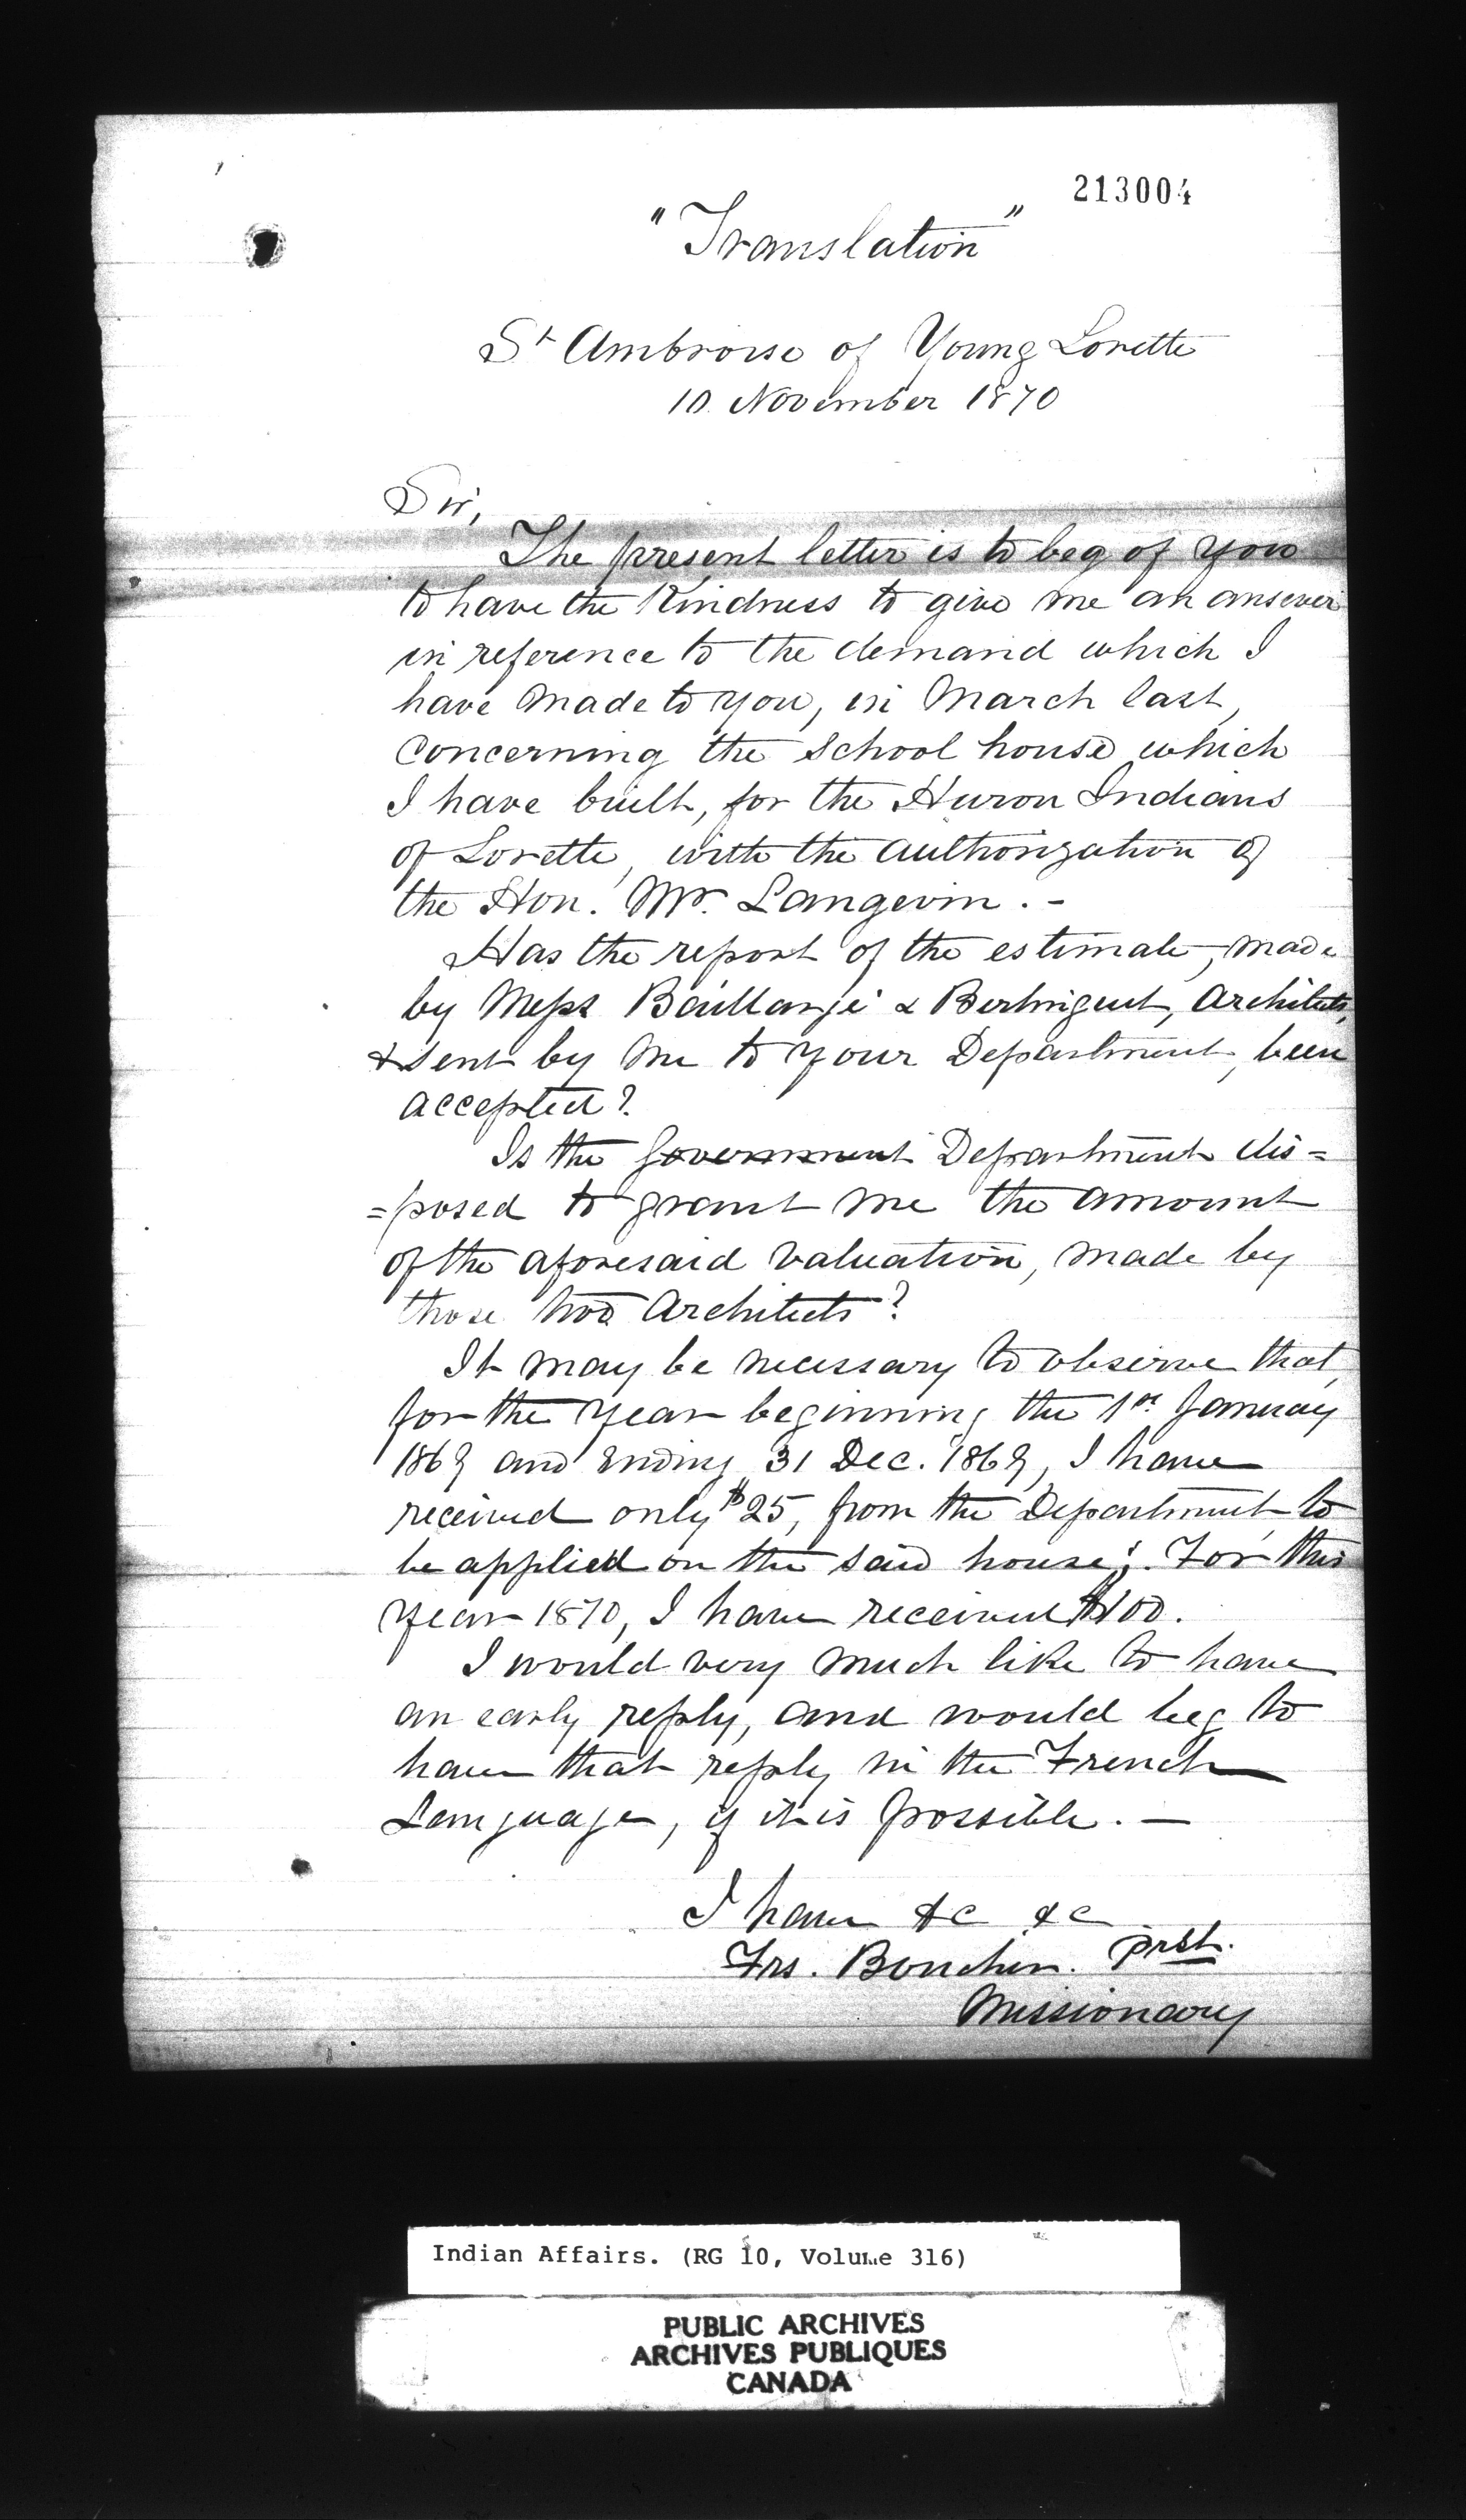 213004
"Translation"
St Ambroise of Young Lorette
10 November 1870
Sir,
The present letter is to beg of you
to have the kindness to give me an answer
in reference to the demand which I
have made to you, in March last,
concerning the school house which
I have built, for the Huron Indians
of Lorette, with the authorization of
the Hon. Mr. Langevin. -
Has the report of the estimate, made
by Messs Baillargé & Berlinguet, Architects,
& sent by me to your Department, been
accepted?
Is the Government Department dis=
=posed to grant me the amount
of the aforesaid valuation, made by
those two Architects?
It may be necessary to observe that,
for the year beginning the 1st January
1869 and ending 31 Dec. 1869, I have
received only $25, from the Department to
be applied on the said house; For this
year 1870, I have received $100.
I would very much like to have
an early reply, and would beg to
have that reply in the French
Language, if it is possible. —
I have &c &c
Frs. Boucher. Prst.
Missionary
Indian Affairs. (RG 10, Volume 316)
PUBLIC ARCHIVES
ARCHIVES PUBLIQUES
CANADA